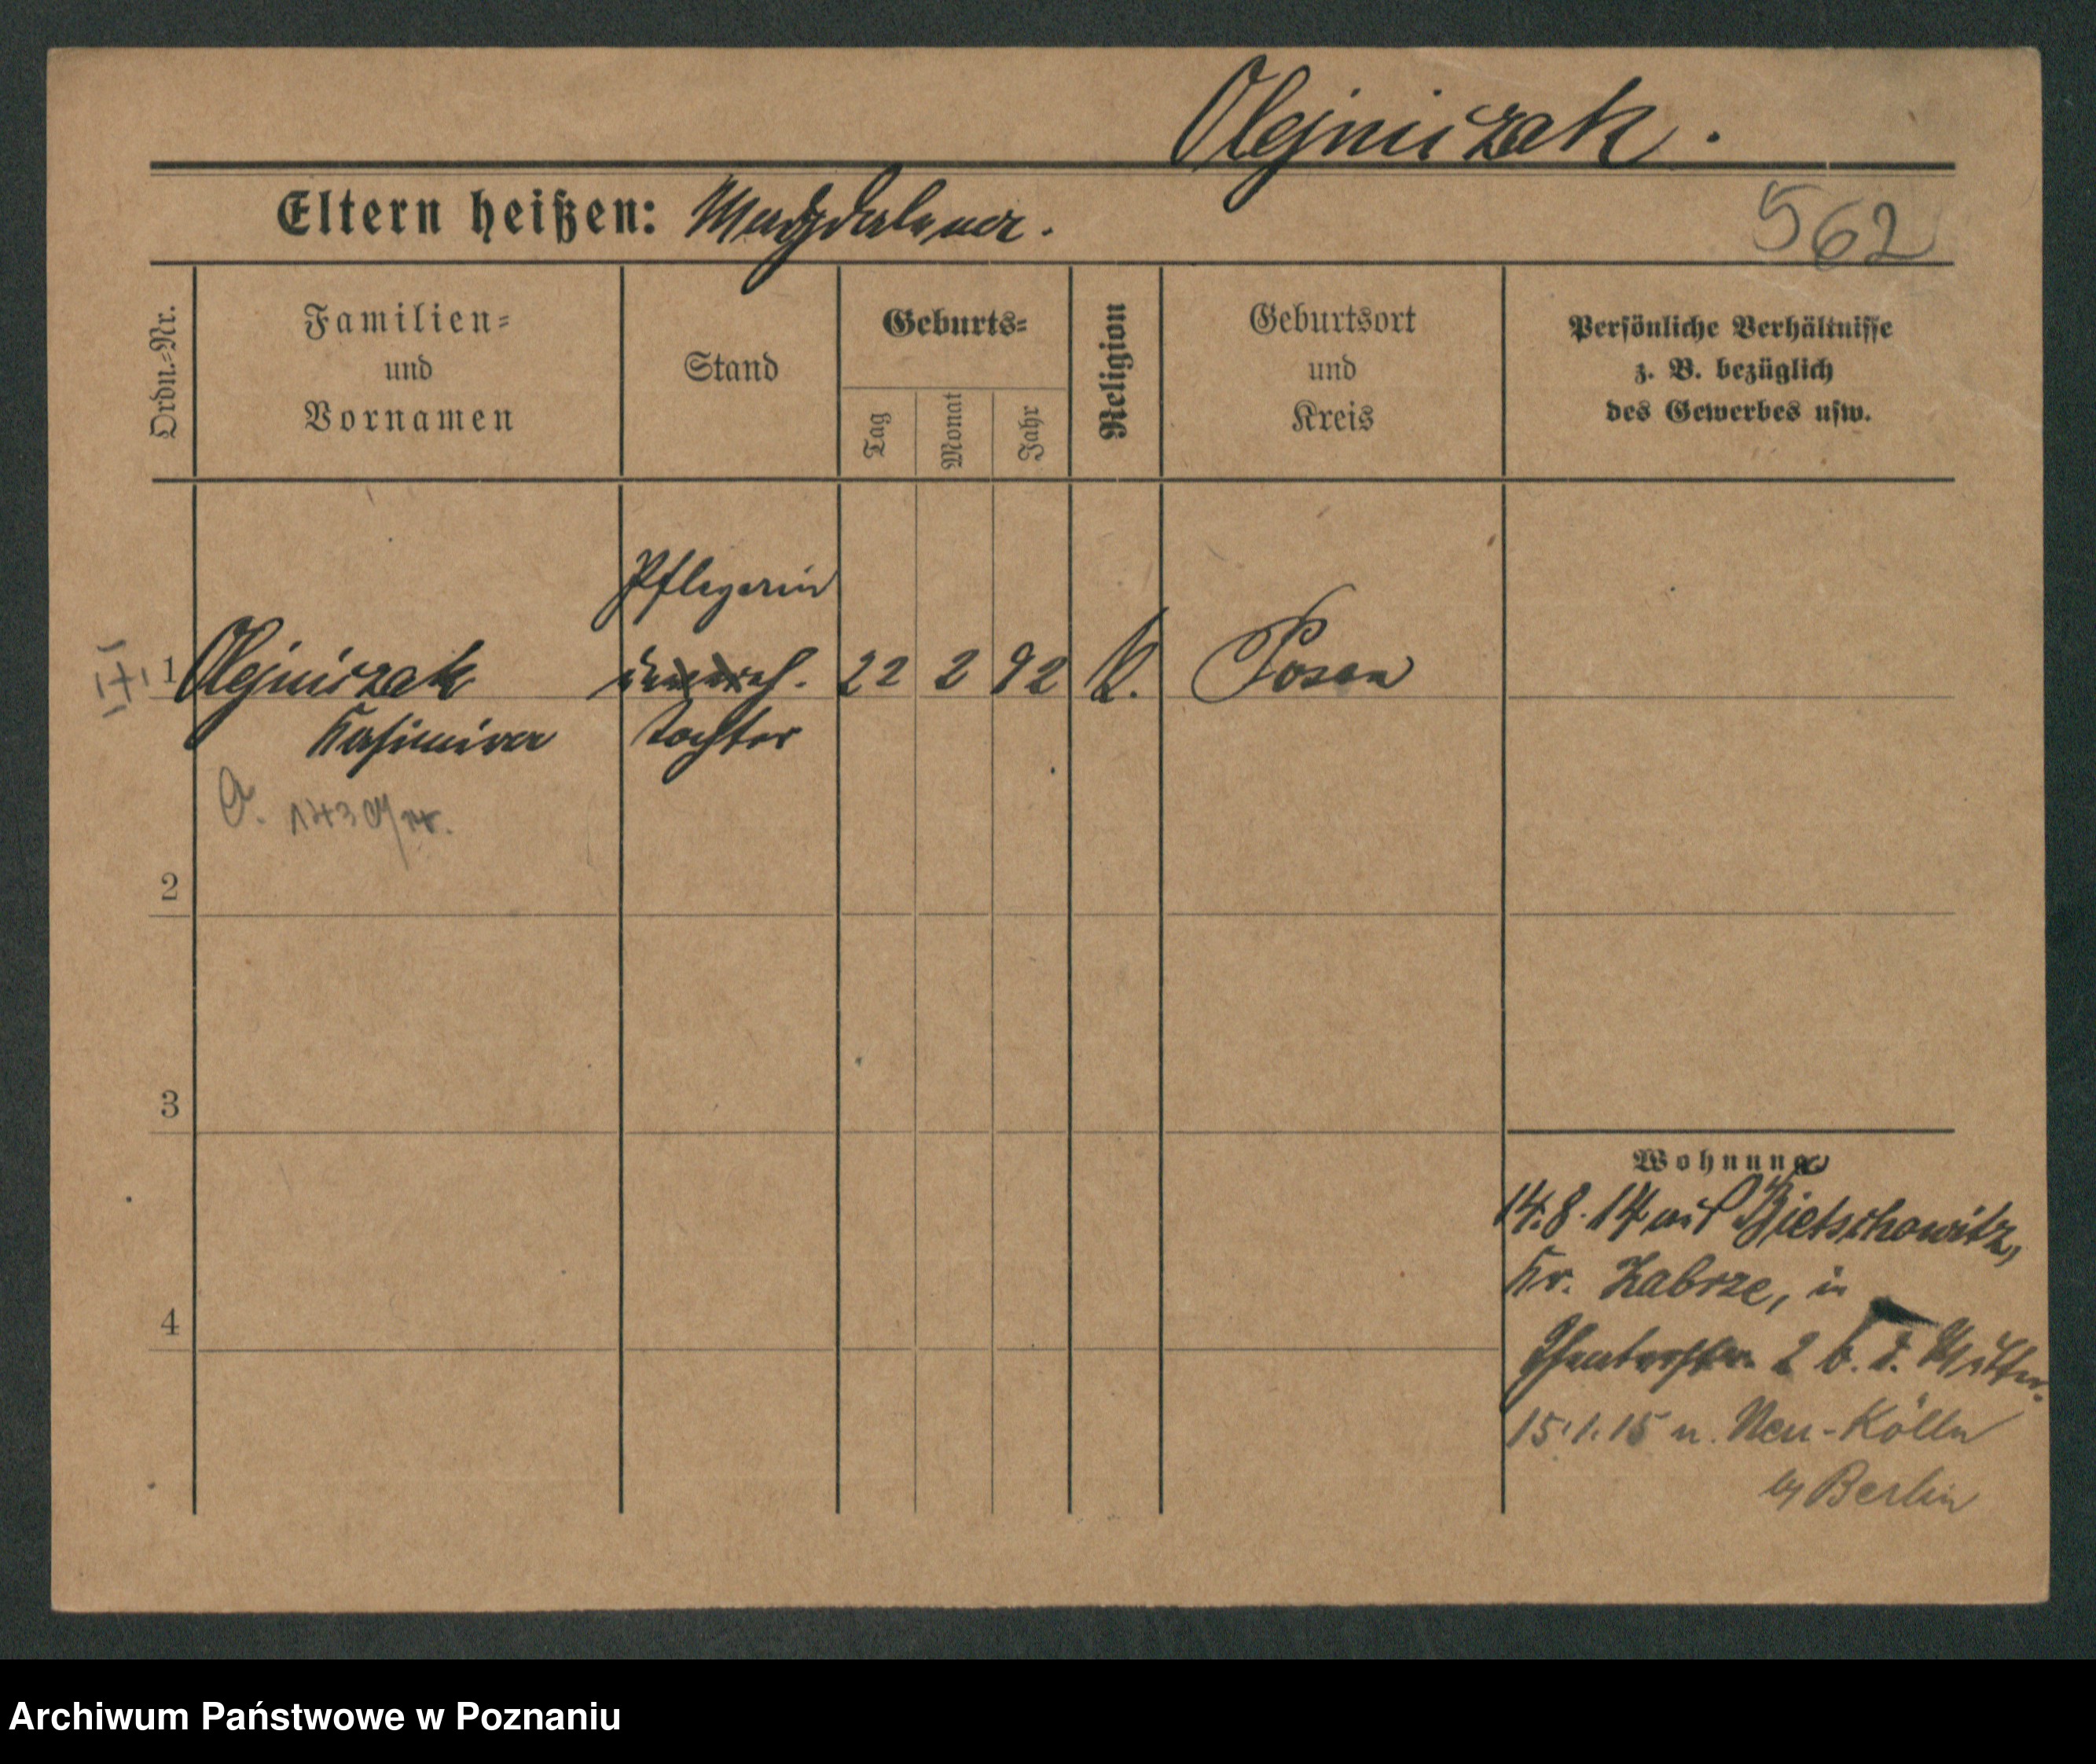 Olejniczak.
Eltern heißen: Magdalena.
562
Ordn.=Nr.
Familien=
und
Vornamen
Stand
Geburts=
Tag
Monat
Jahr
Religion
Geburtsort
und
Kreis
Persönliche Verhältnisse
z. B. bezüglich
des Gewerbes usw.
Pflegerin
1 Olejniczak 22 2 92 K. Posen
Kasimira Tochter
2
3
4
Wohnung
14.8.14 auf Bietschowitz,
Kr. Zabrze, in
2 b. d. Mutter.
15.1.15 n. Neu-Kölln
b/ Berlin
Archiwum Państwowe w Poznaniu